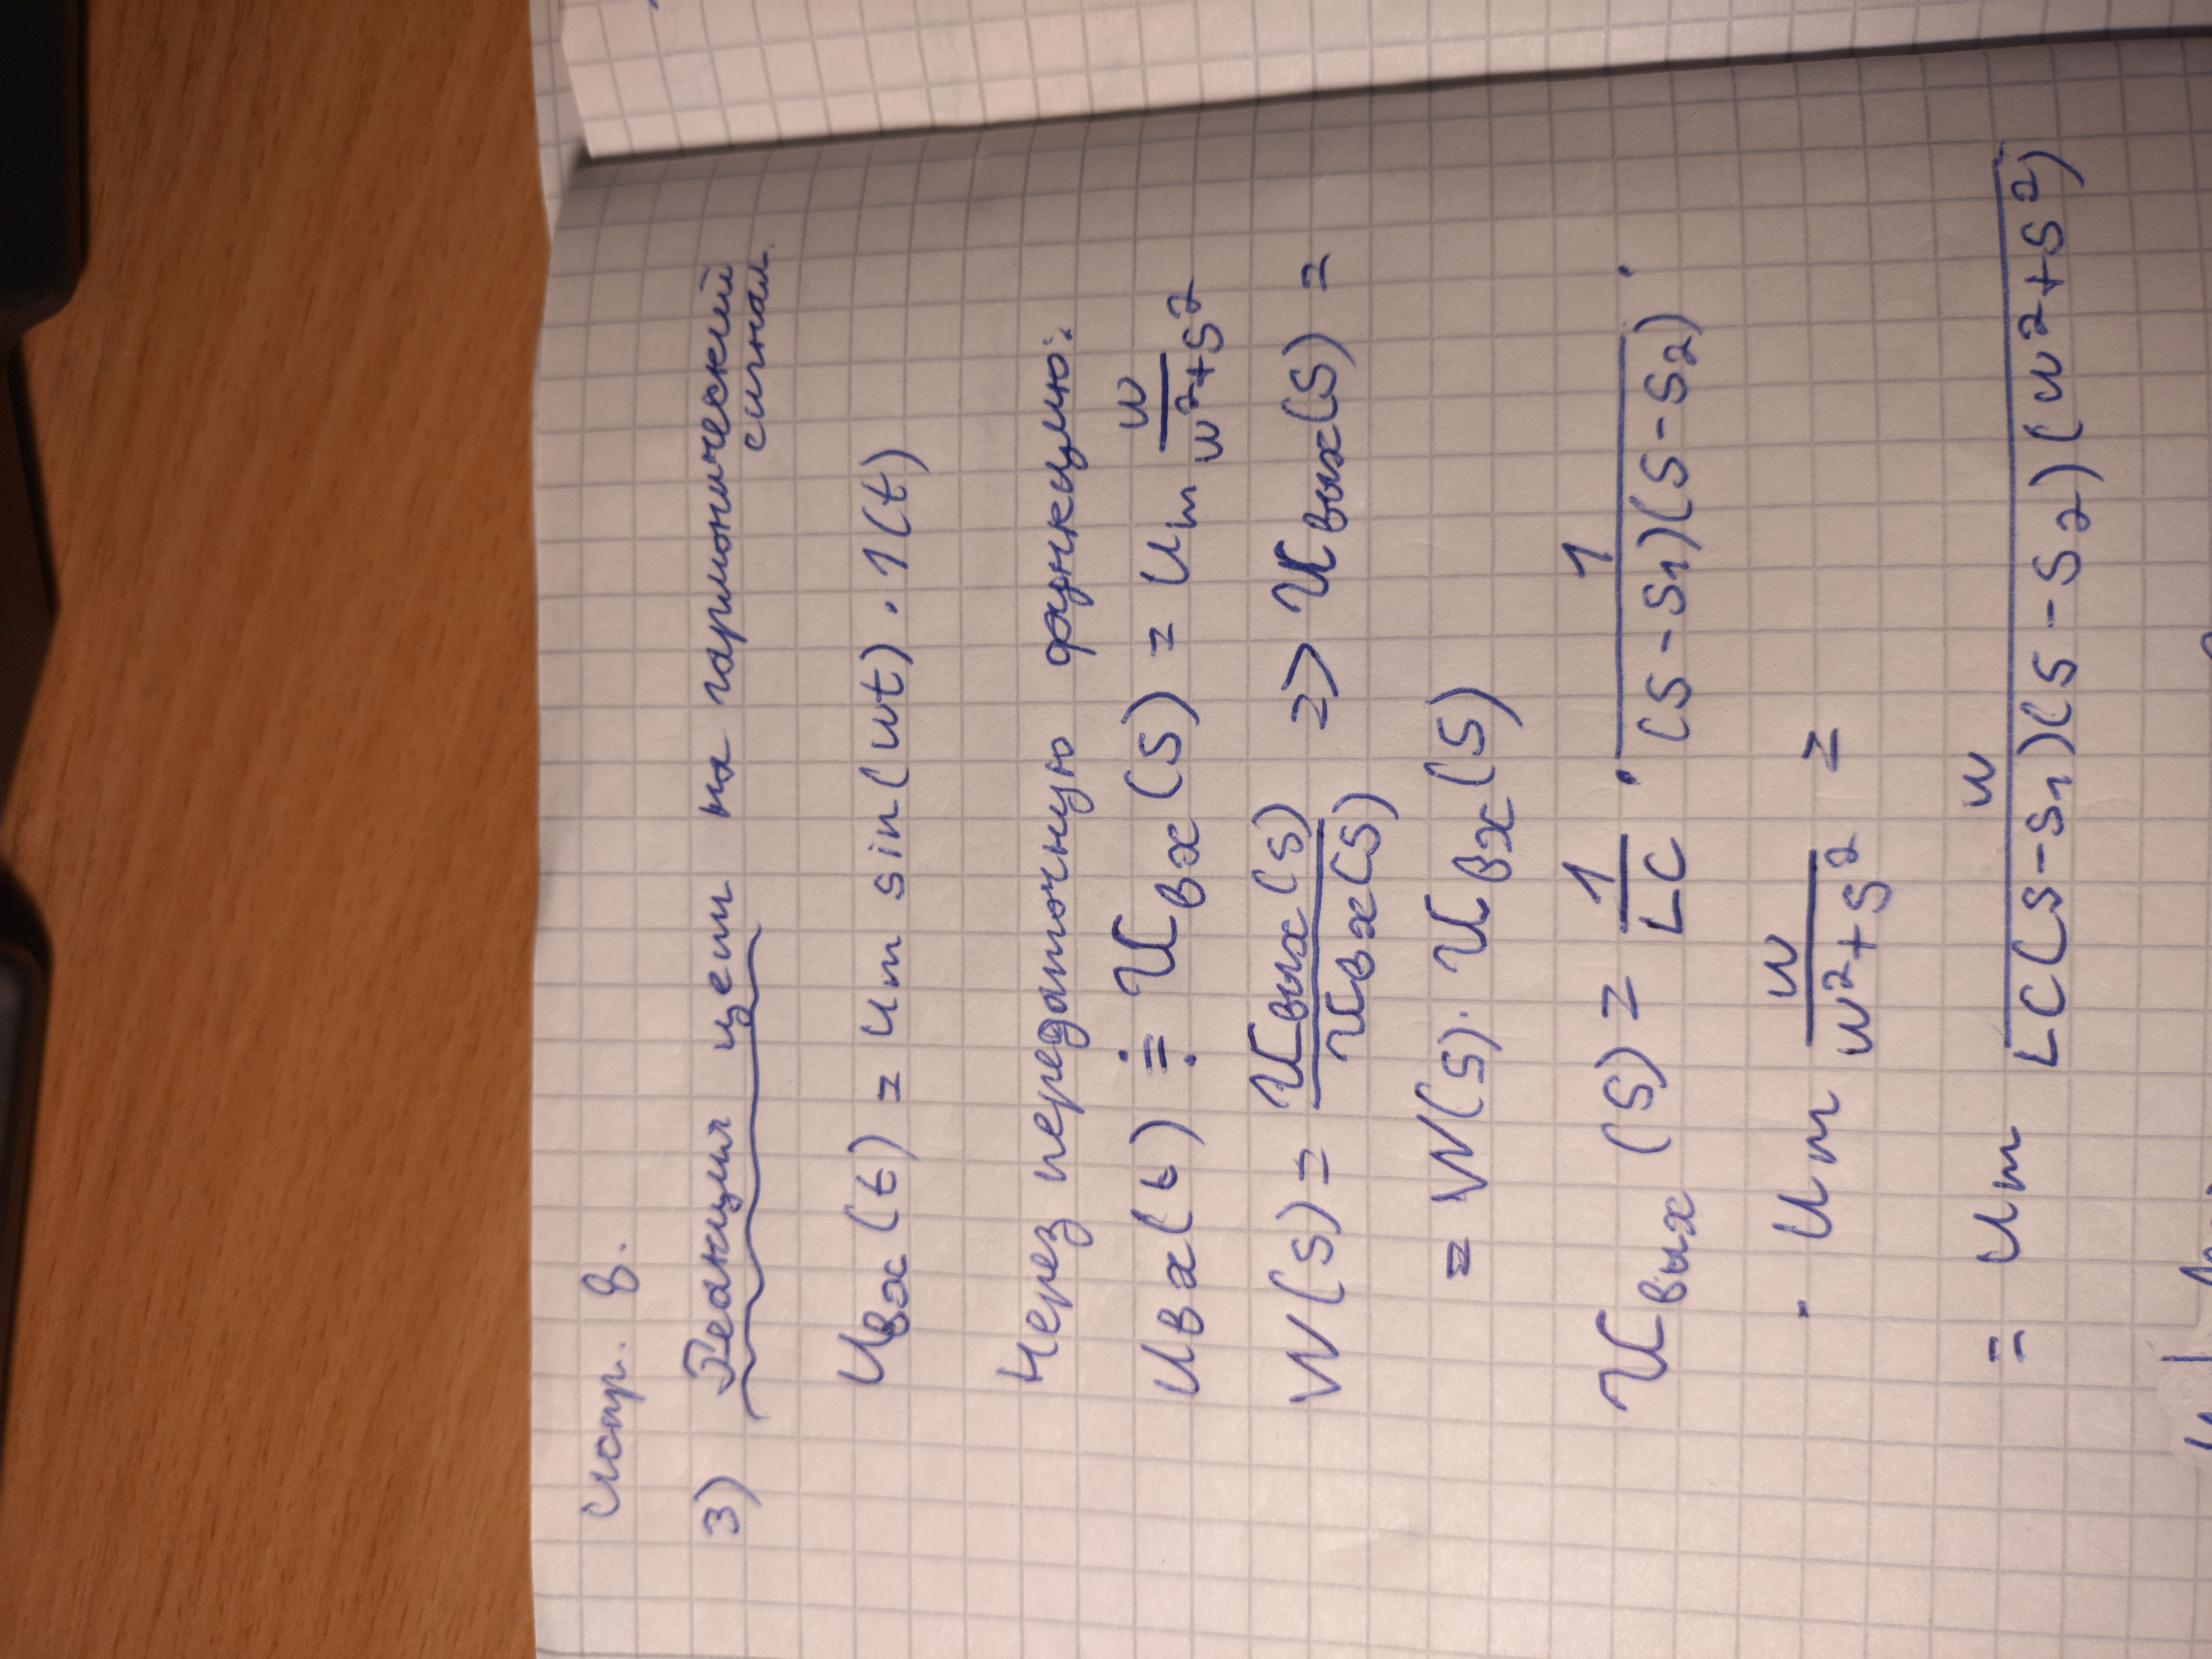 испр. 8.
3) Реакция цепи на гармонический
сигнал.
Uвх(t) = Um sin(ωt) · 1(t)
Через передаточную функцию:
Uвх(t) ≓ Uвх(s) = Um ω/(ω²+s²)
W(s) = Uвых(s)/Uвх(s) => Uвых(s) =
= W(s) · Uвх(s)
Uвых(s) = 1/LC · 1/((s-s₁)(s-s₂)) ·
· Um ω/(ω²+s²) =
= Um ω/(LC(s-s₁)(s-s₂)(ω²+s²))